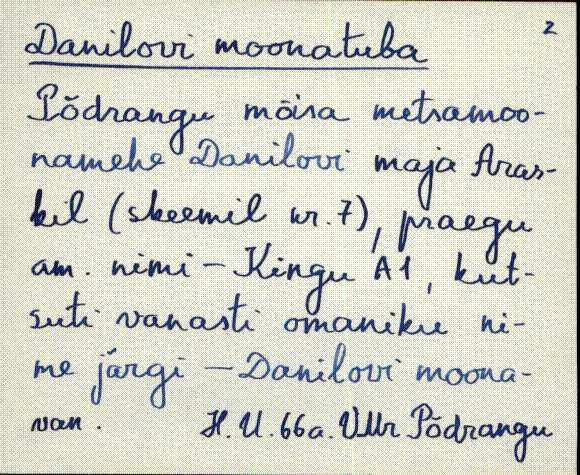 2
Danilovi moonatuba
Põdrangu mõisa metsamoo-
namehe Danilovi maja Aras-
kil (skeemil nr. 7), praegu
am. nimi – Kingu A1, kut-
suti vanasti omaniku ni-
me järgi – Danilovi moona-
van. H. U. 66a. VMr Põdrangu